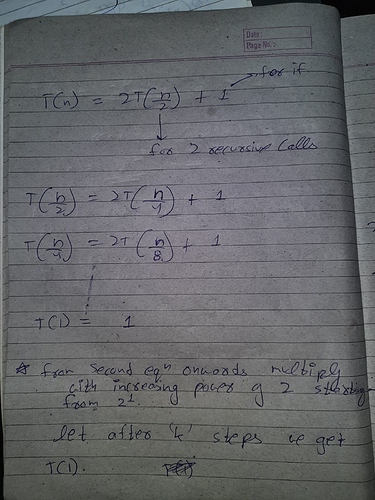 Date:
Page No.:
for if
T(n) = 2T(n/2) + 1
for 2 recursive calls
T(n/2) = 2T(n/4) + 1
T(n/4) = 2T(n/8) + 1
T(1) = 1
* from second eqn onwards multiply
with increasing power of 2 starting
from 2^1.
let after 'k' steps we get
T(1).